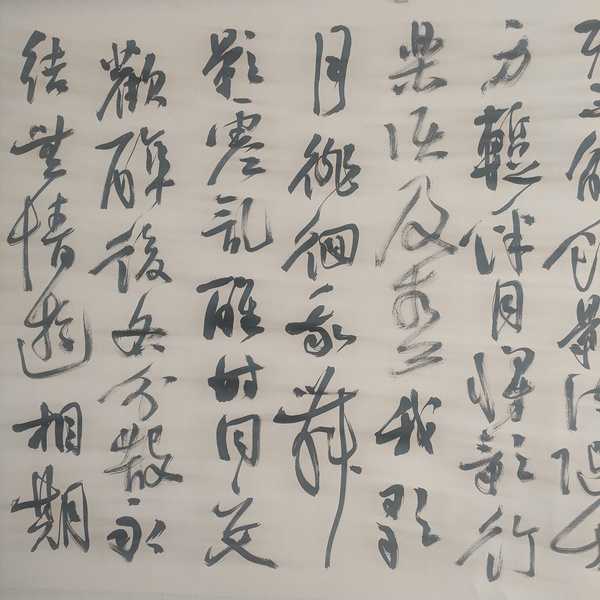 不解飲影徒隨我
身暫伴月將影行
樂須及春我歌
月徘徊我舞
影零亂醒時同交
歡醉後各分散永
結無情遊相期